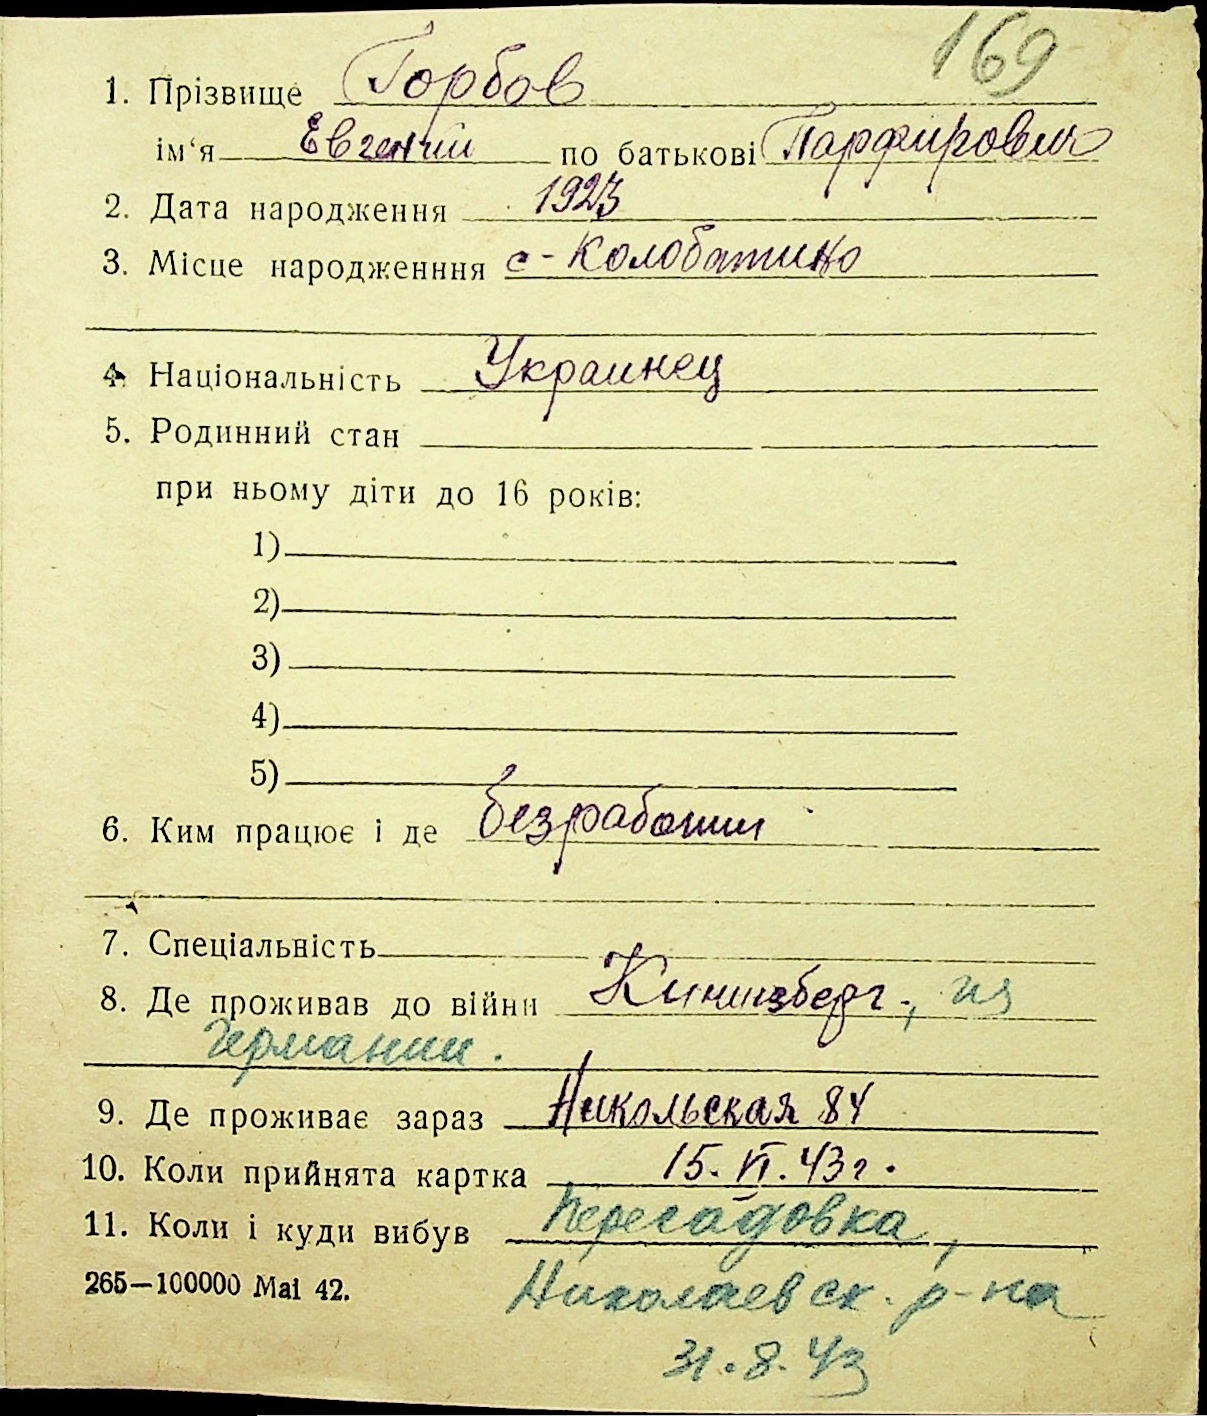 169
1. Прізвище Горбов
ім‘я Евгений по батькові Парфирович
2. Дата народження 1923
3. Місце народженння с-Колобатино
4. Національність Украинец
5. Родинний стан
при ньому діти до 16 років:
1)
2)
3)
4)
5)
6. Ким працює і де безработный
7. Спеціальність
8. Де проживав до війни Кинигзберг, из
Германии.
9. Де проживає зараз Никольская 84
10. Коли прийнята картка 15. VI. 43 г.
11. Коли і куди вибув Пересадовка,
265—100000 Mai 42.
Николаевск. р-на
31.8.43